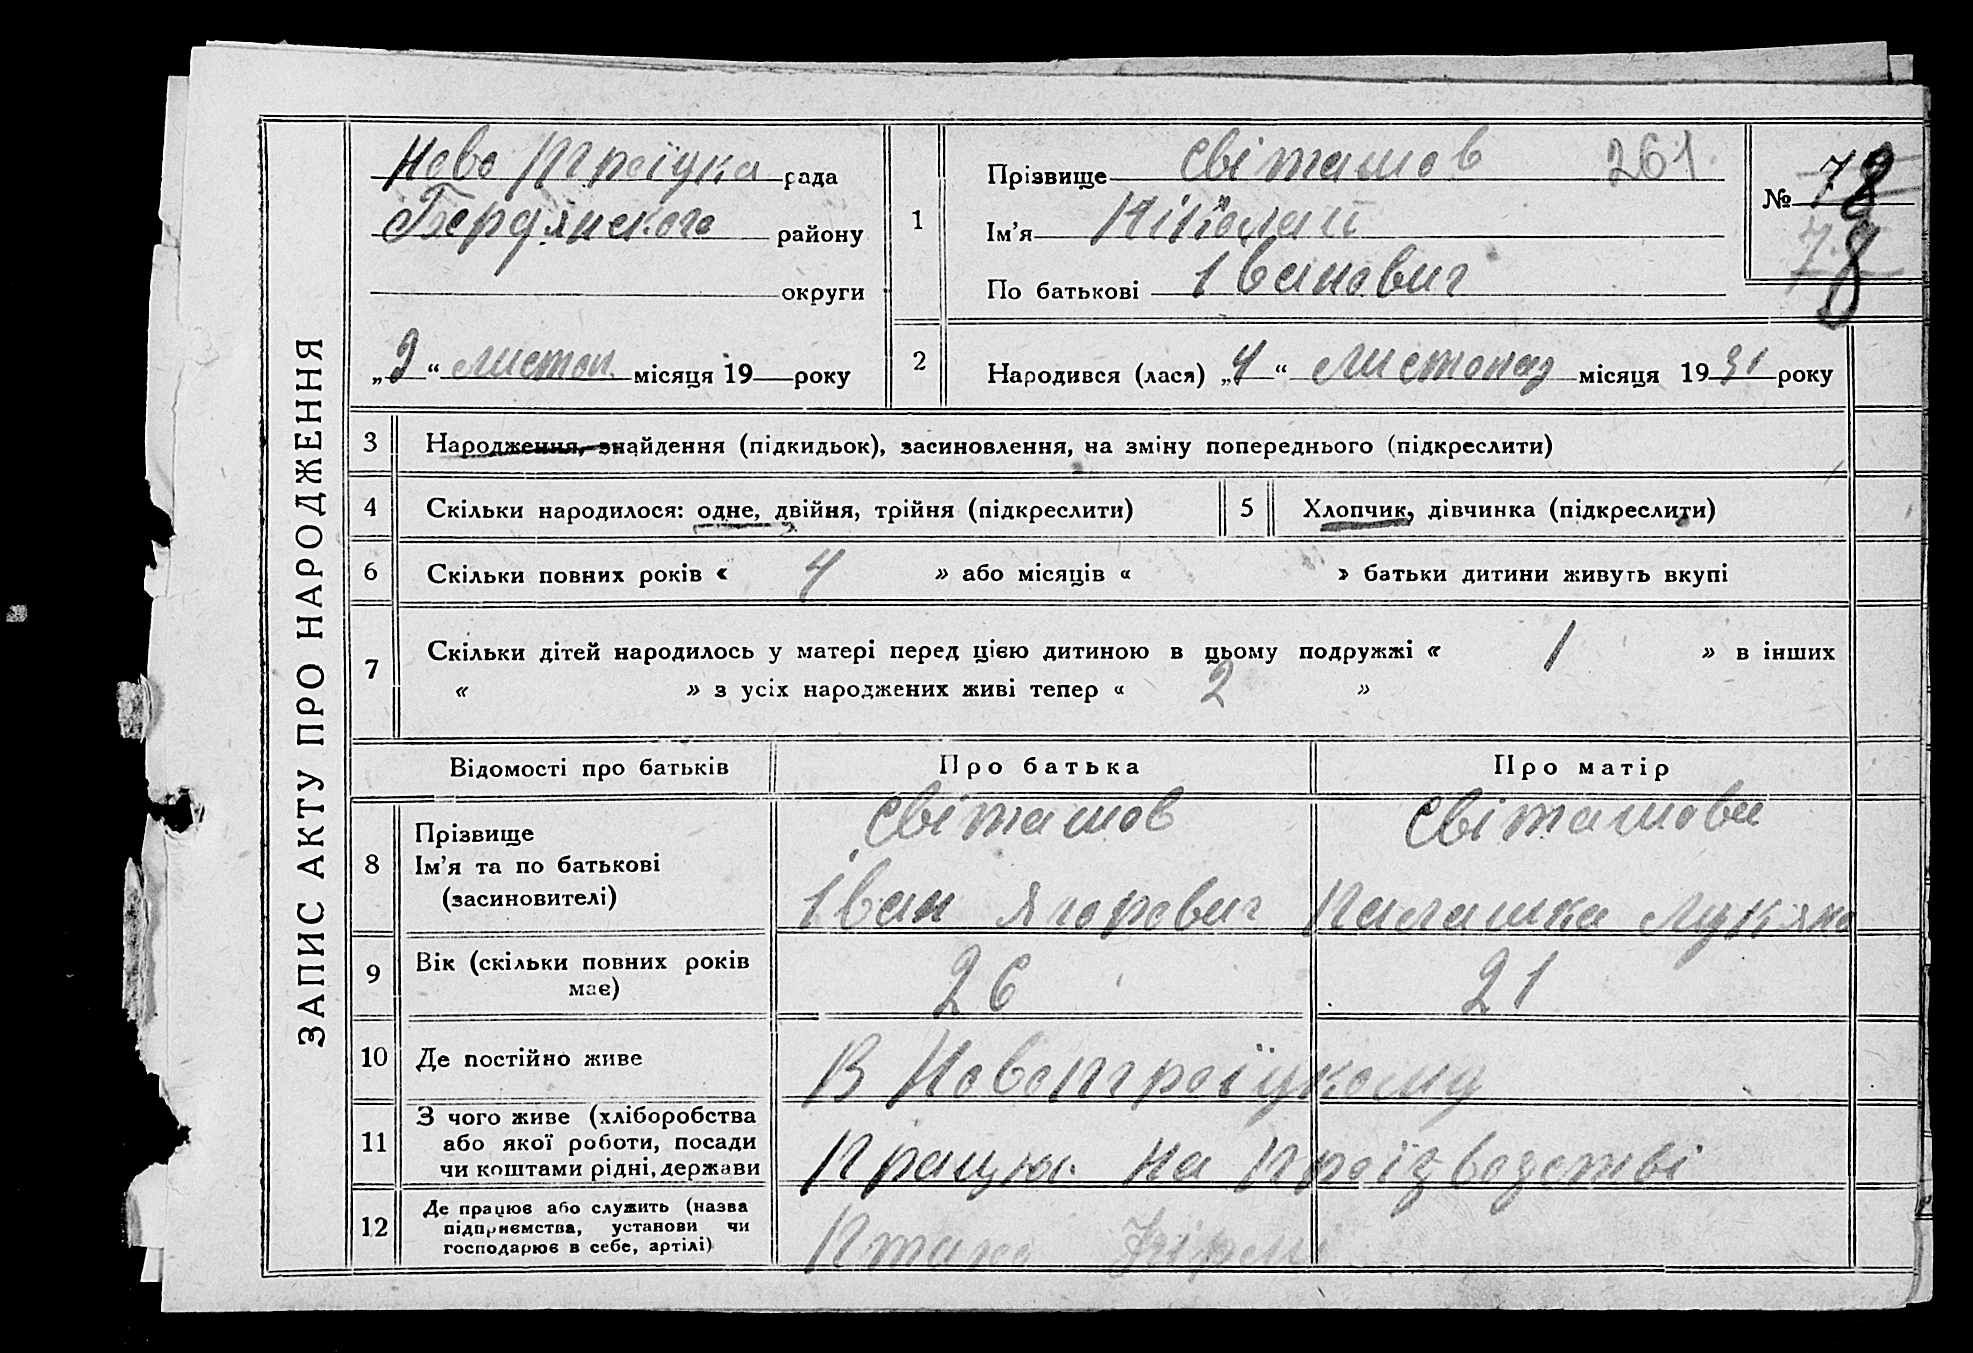 ЗАПИС АКТУ ПРО НАРОДЖЕННЯ
Ново Троїцка рада
Бердянского району
округи
„9“ листоп. місяця 19 року
1
Прізвище Світашов 261
Ім’я Ніколай
По батькові Іванович
№ 78
78
2
Народився (лася) „4“ Листопад місяця 1931 року
3 Народження, знайдення (підкидьок), засиновлення, на зміну попереднього (підкреслити)
4 Скільки народилося: одне, двійня, трійня (підкреслити) 5 Хлопчик, дівчинка (підкреслити)
6 Скільки повних років « 4 » або місяців « » батьки дитини живуть вкупі
7 Скільки дітей народилось у матері перед цією дитиною в цьому подружжі « 1 » в інших
« » з усіх народжених живі тепер « 2 »
Відомості про батьків Про батька Про матір
8 Прізвище Світашов Світашова
Ім’я та по батькові
(засиновителі) Іван Ягорович Палашка Лукяно
9 Вік (скільки повних років
має) 26 21
10 Де постійно живе В Новотроїцкому
11 З чого живе (хліборобства
або якої роботи, посади
чи коштами рідні, держави Працює на Проїзводстві
12 Де працює або служить (назва
підприємства, установи чи
господарює в себе, артілі)